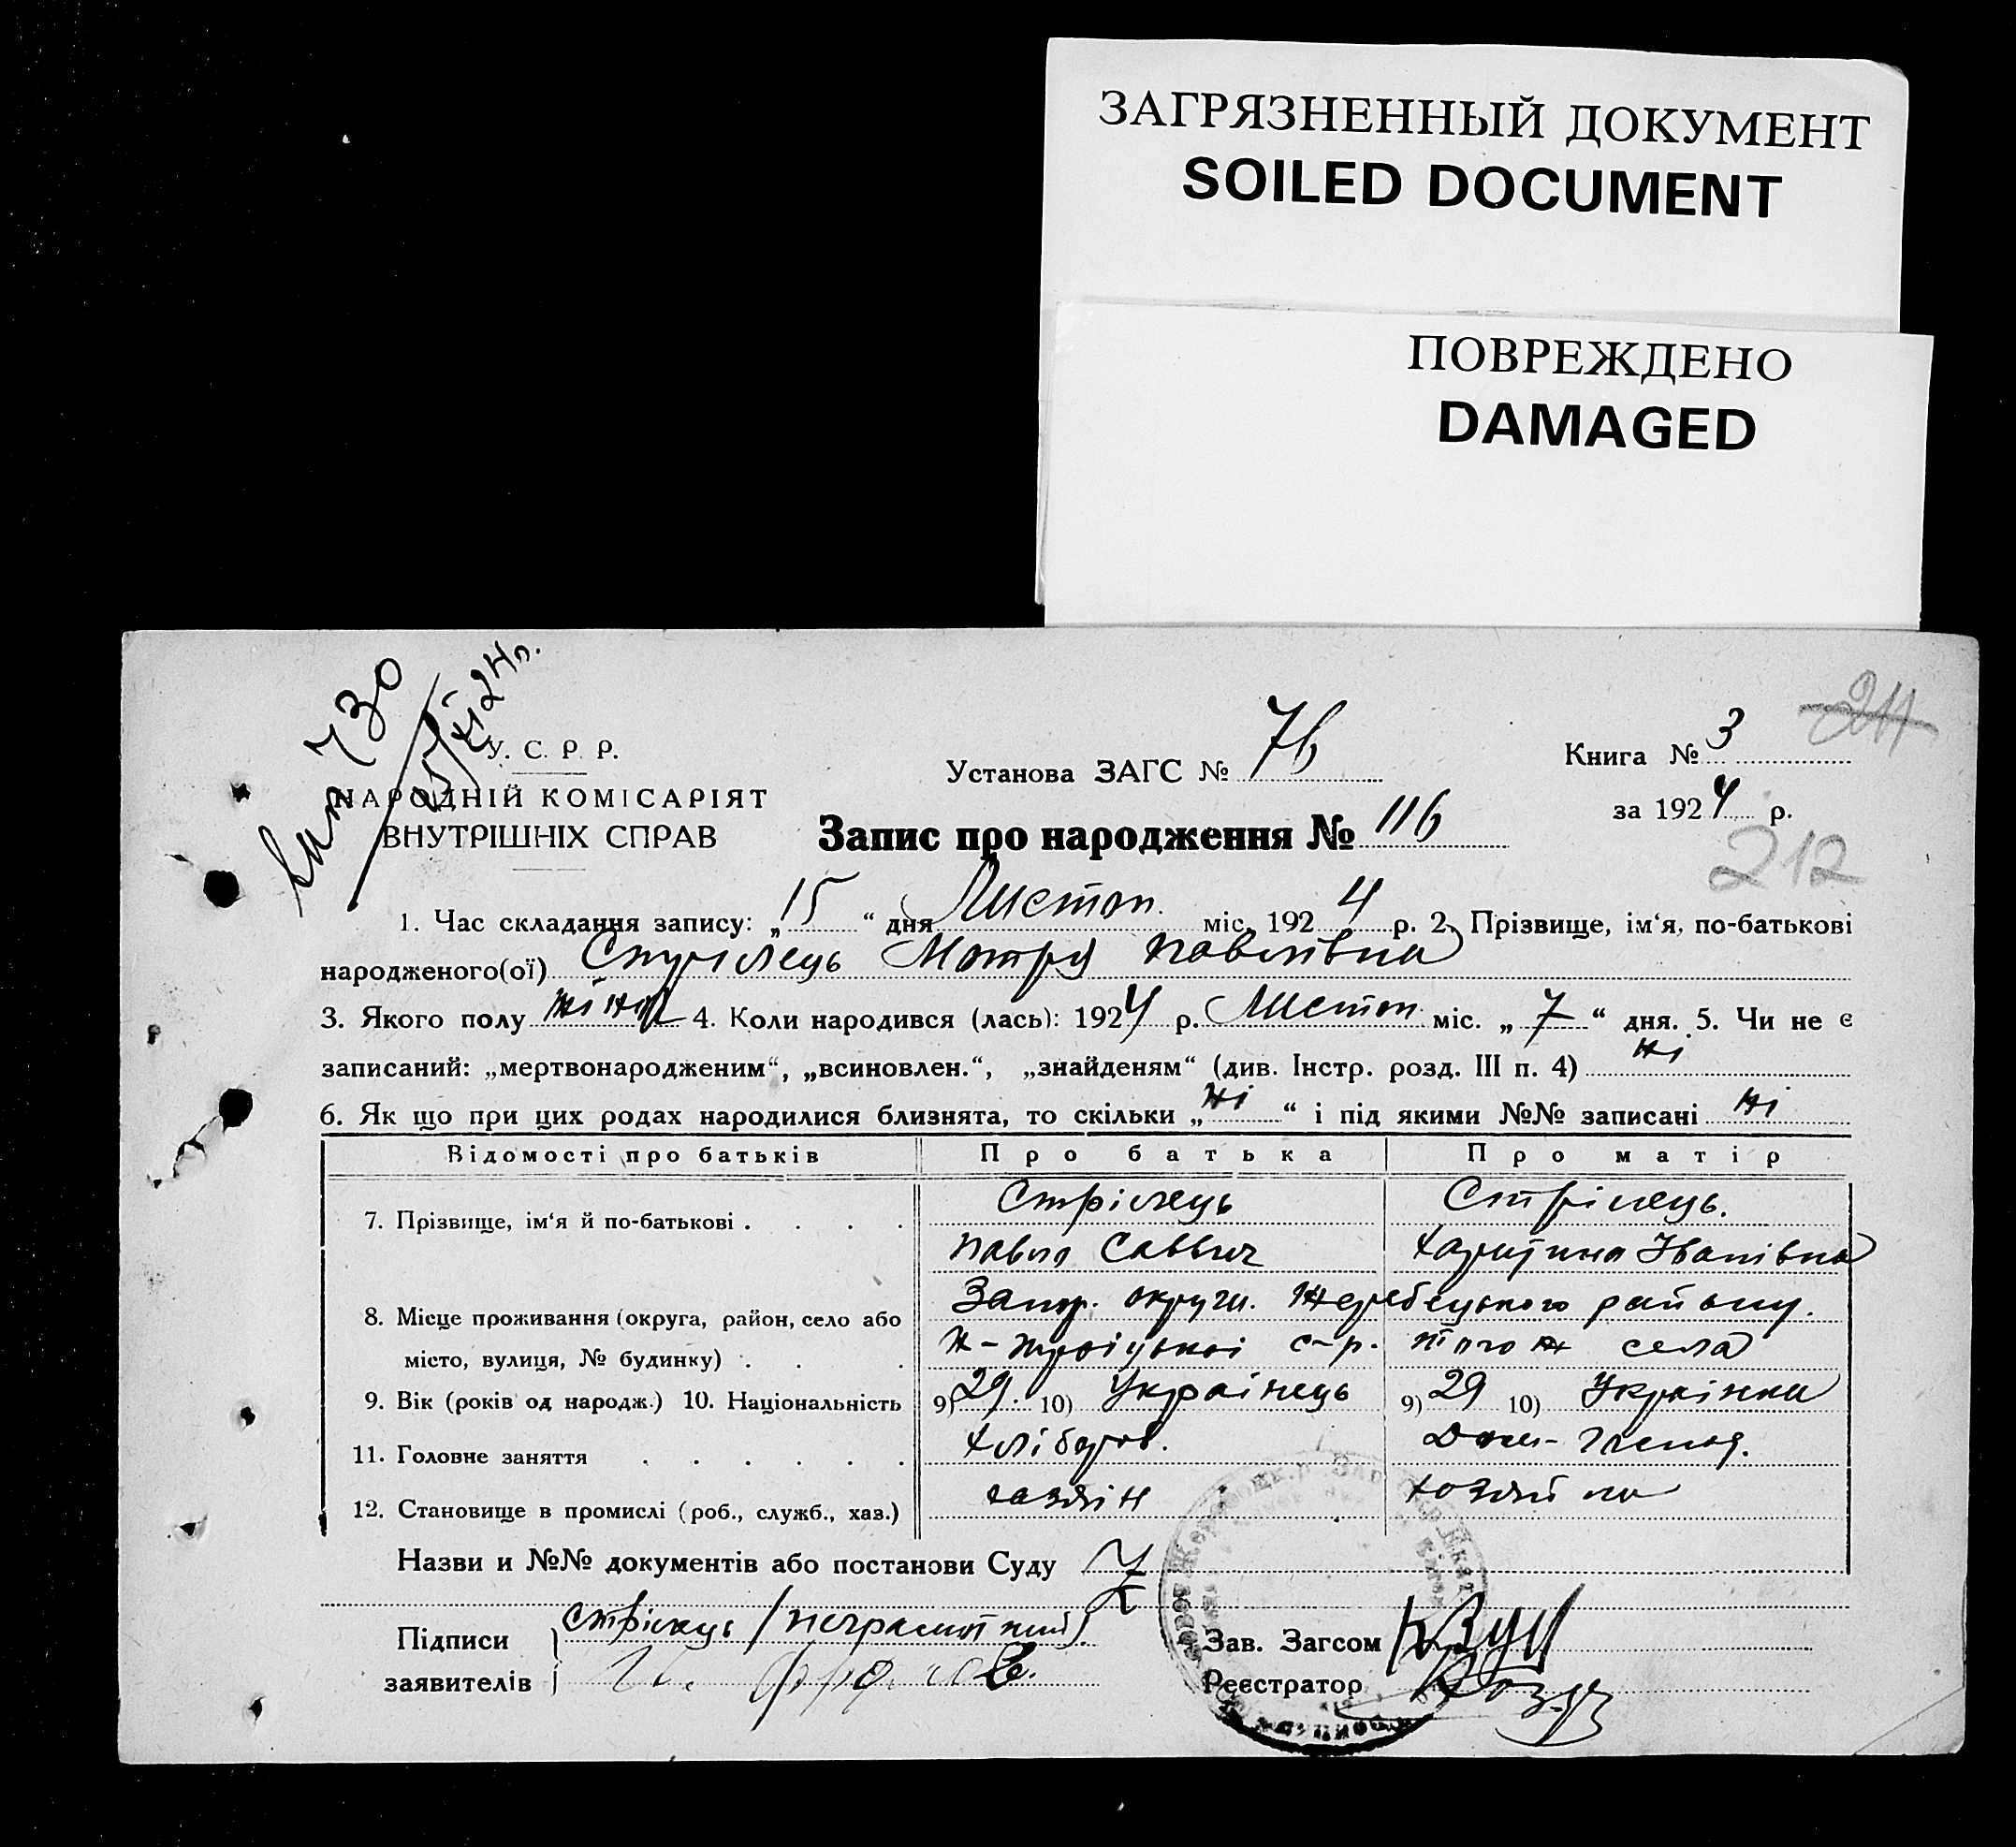 ЗАГРЯЗНЕННЫЙ ДОКУМЕНТ
SOILED DOCUMENT
ПОВРЕЖДЕНО
DAMAGED
730
24р.
211
У. С. Р. Р.
НАРОДНІЙ КОМІСАРІЯТ
ВНУТРІШНІХ СПРАВ
Установа ЗАГС № 76
Книга № 3
за 1924 р.
Запис про народження № 116
212
1. Час складання запису: „15“ дня Листоп. міс. 1924 р. 2. Прізвище, ім‘я, по-батькові
народженого(ої) Стрілець Мотря Павлівна
3. Якого полу жіноч 4. Коли народився (лась): 1924 р. Листоп. міс. „7“ дня. 5. Чи не є
записаний: „мертвонародженим“, „всиновлен.“, „знайденям“ (див. Інстр. розд. III п. 4) ні
6. Як що при цих родах народилися близнята, то скільки „ні“ і під якими №№ записані ні
Відомості про батьків Про батька Про матір
7. Прізвище, ім‘я й по-батькові . . . . Стрілець Стрілець.
Павло Саввич Харитина Іванівна
8. Місце проживання (округа, район, село або Запор. округи. Жеребецького району.
місто, вулиця, № будинку) . . . Н-Троіцькоі с-р. того ж села
9. Вік (років од народж.) 10. Національність 9) 29. 10) Украінець 9) 29 10) Украінка
11. Головне заняття . . . . . . Хлібороб. Дом-господ.
12. Становище в промислі (роб., служб., хаз.) хазяін хозяйка
Назви и №№ документів або постанови Суду
Підписи Стрілець /неграмотний/.
заявителів
Зав. Загсом
Реєстратор